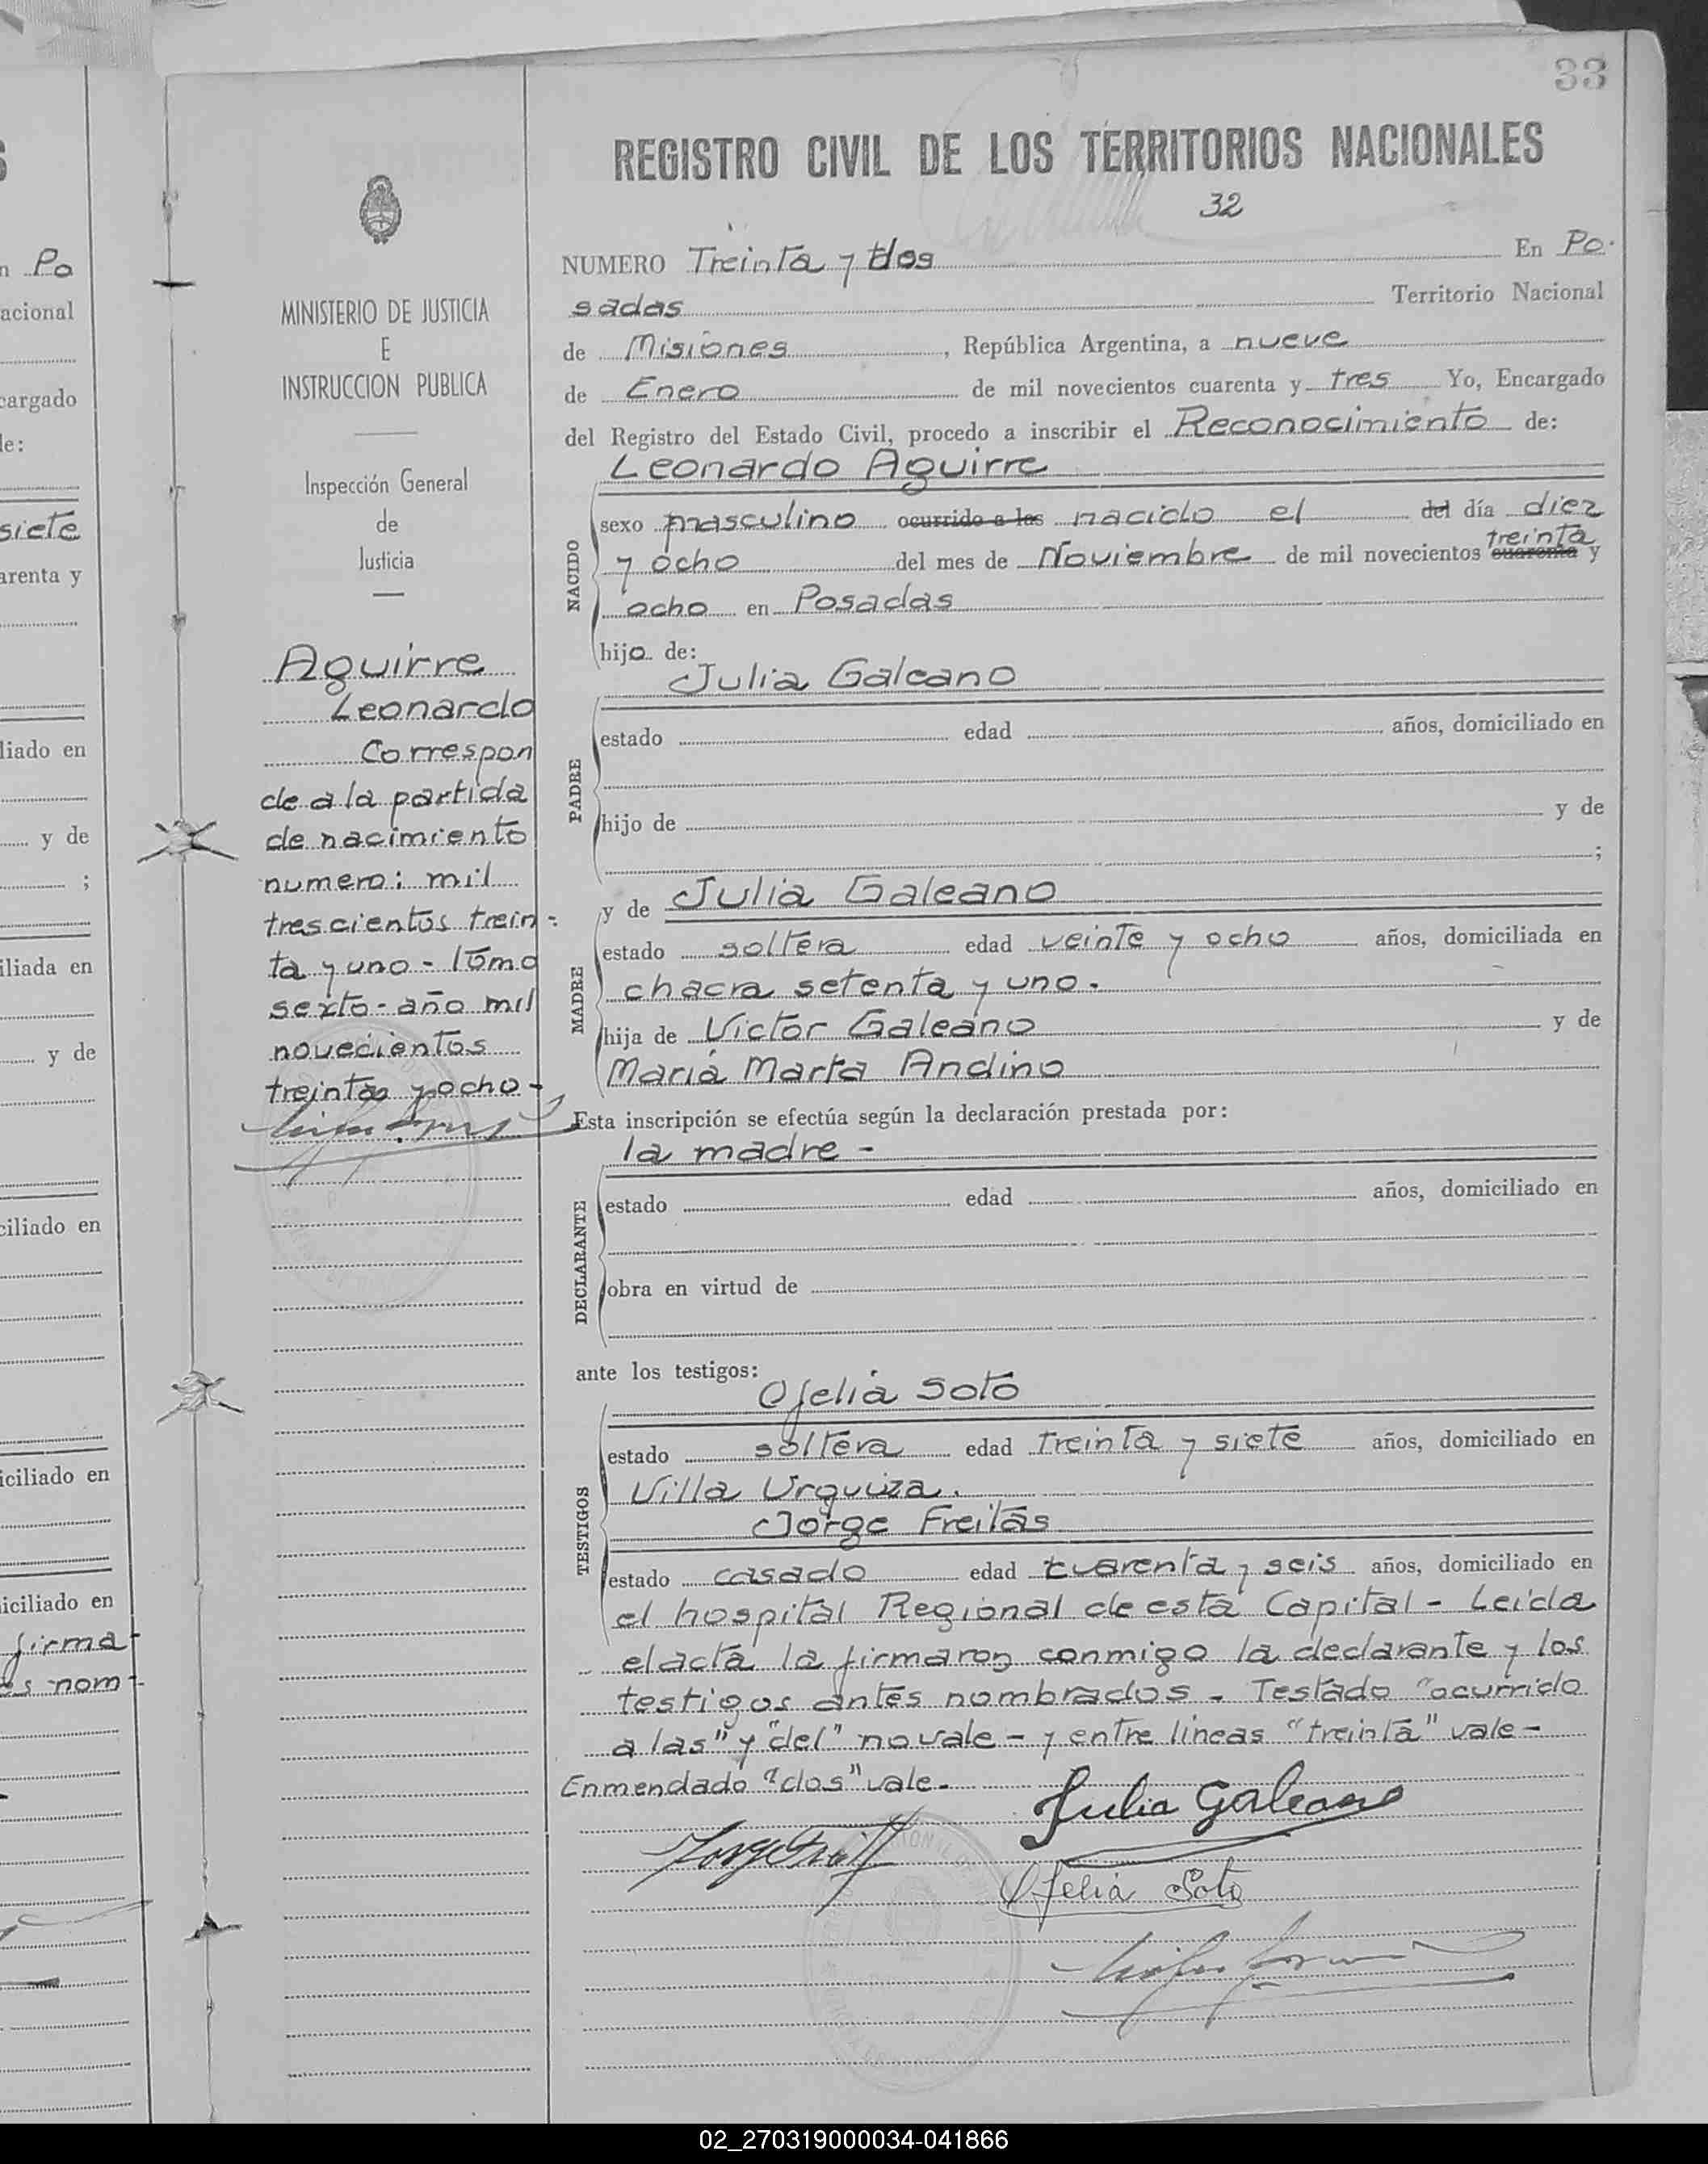 33
REGISTRO CIVIL DE LOS TERRITORIOS NACIONALES
32
NUMERO Treinta y dos En Po-
sadas Territorio Nacional
de Misiones, República Argentina, a nueve
de Enero de mil novecientos cuarenta y tres Yo, Encargado
del Registro del Estado Civil, procedo a inscribir el Reconocimiento de:
Leonardo Aguirre
NACIDO
sexo masculino ocurrido a las nacido el del día diez
treinta
y ocho del mes de Noviembre de mil novecientos cuarenta y
ocho en Posadas
hijo de:
Julia Galeano
PADRE
estado edad años, domiciliado en
hijo de y de
;
y de Julia Galeano
MADRE
estado soltera edad veinte y ocho años, domiciliada en
chacra setenta y uno.
hija de Victor Galeano y de
Maria Marta Andino
Esta inscripción se efectúa según la declaración prestada por:
la madre -
DECLARANTE
estado edad años, domiciliado en
obra en virtud de
ante los testigos:
Ofelia Soto
TESTIGOS
estado soltera edad treinta y siete años, domiciliado en
Villa Urquiza.
Jorge Freitas
estado casado edad cuarenta y seis años, domiciliado en
el hospital Regional de esta Capital - Leida
el acta la firmaron conmigo la declarante y los
testigos antes nombrados - Testado "ocurrido
a las" y "del" no vale - y entre lineas "treinta" vale -
Enmendado "dos" vale -
Julia Galeano
Ofelia Soto
MINISTERIO DE JUSTICIA
E
INSTRUCCION PUBLICA
Inspección General
de
Justicia
Aguirre
Leonardo
Correspon
de a la partida
de nacimiento
numero: mil
trescientos trein-
ta y uno - Tomo
sexto - año mil
novecientos
treinta y ocho -
Po
acional
cargado
de:
siete
arenta y
liado en
y de
;
iliada en
y de
ciliado en
iciliado en
iciliado en
firma
es nom-
02_270319000034-041866